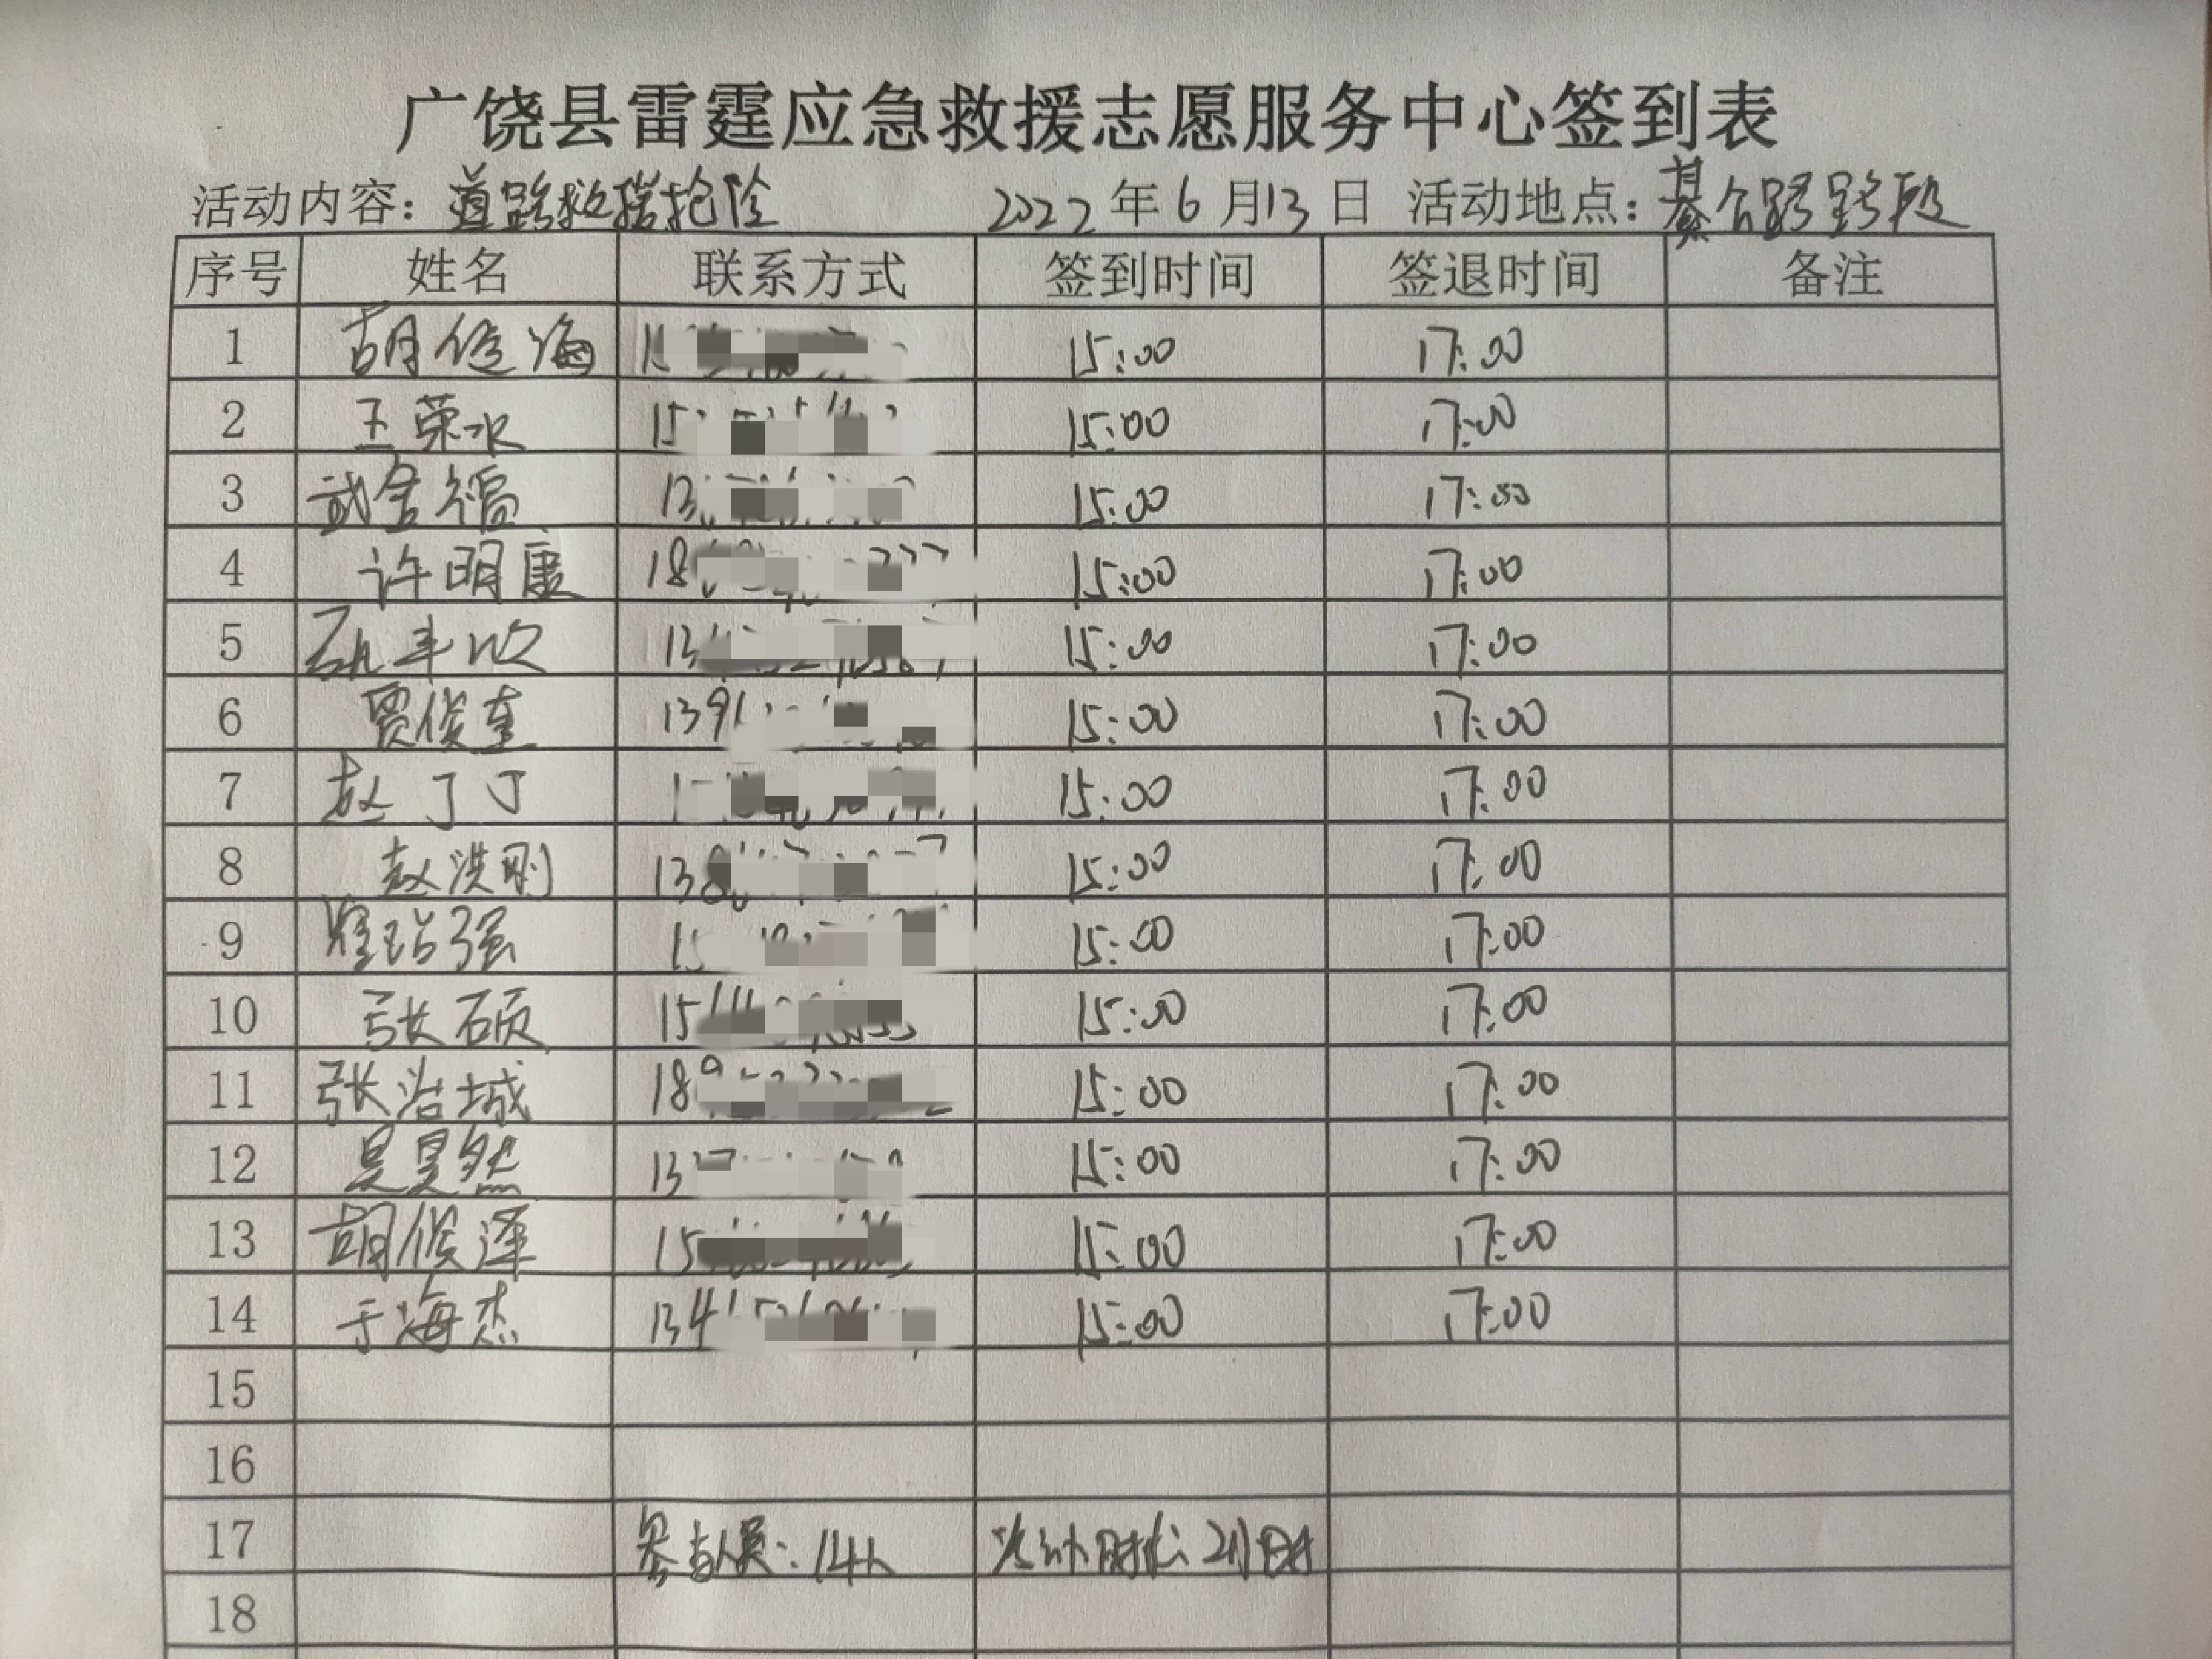 广饶县雷霆应急救援志愿服务中心签到表
活动内容：道路救援抢险 2022年6月13日 活动地点：路路段
序号 姓名 联系方式 签到时间 签退时间 备注
1 胡俊海 15:00 17:00
2 王荣水 15 15:00 17:00
3 武金福 13 15:00 17:00
4 许明康 18 15:00 17:00
5 13 15:00 17:00
6 贾俊奎 139 15:00 17:00
7 赵丁丁 15:00 17:00
8 赵洪刚 138 15:00 17:00
9 强 15:00 17:00
10 张硕 15 15:00 17:00
11 张治城 189 15:00 17:00
12 昊然 137 15:00 17:00
13 胡俊泽 15 15:00 17:00
14 于海杰 134 15:00 17:00
15
16
17 参与人员：14人 活动时长 2小时
18